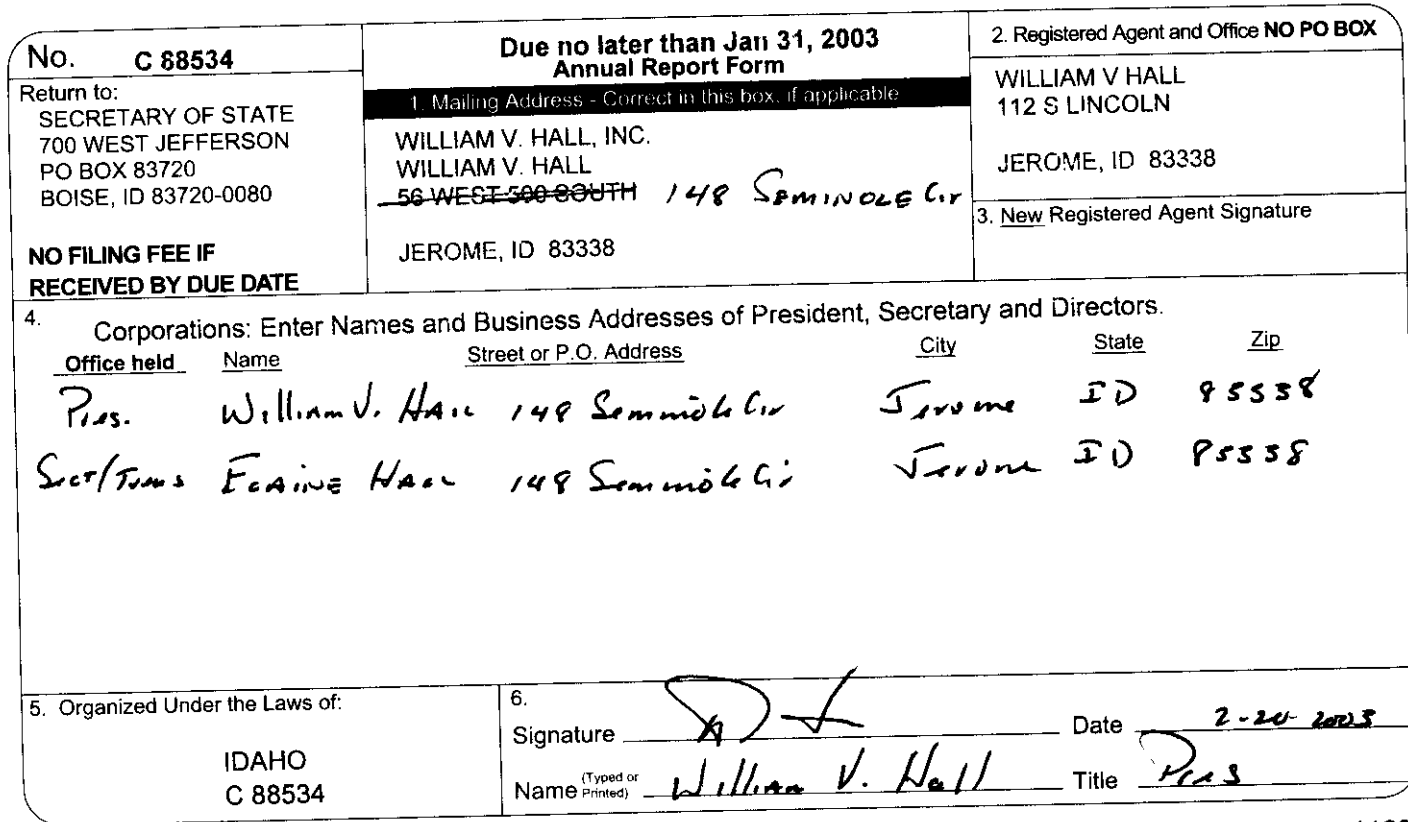 No. C 88534
Return to:
SECRETARY OF STATE
700 WEST JEFFERSON
PO BOX 83720
BOISE, ID 83720-0080
NO FILING FEE IF
RECEIVED BY DUE DATE
Due no later than Jan 31, 2003
Annual Report Form
1. Mailing Address - Correct in this box, if applicable
WILLIAM V. HALL, INC.
WILLIAM V. HALL
56 WEST 500 SOUTH 148 SEMINOLE Cir
JEROME, ID 83338
2. Registered Agent and Office NO PO BOX
WILLIAM V HALL
112 S LINCOLN
JEROME, ID 83338
3. New Registered Agent Signature
4. Corporations: Enter Names and Business Addresses of President, Secretary and Directors.
Office held Name Street or P.O. Address City State Zip
Pres. William V. Hall 148 Seminole Cir Jerome ID 83338
Sect/Treas Elaine Hall 148 Seminole Cir Jerome ID 83338
5. Organized Under the Laws of:
IDAHO
C 88534
6.
Signature Date 2-20-2003
Name (Typed or Printed) William V. Hall Title Pres